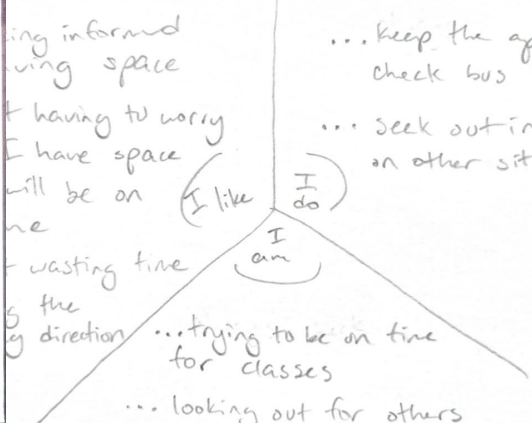 ing informed
ving space
t having to worry
I have space
will be on
ne
t wasting time
s the
g direction
I like
... keep the ap
check bus
... seek out in
on other sit
I
do
I
am
...trying to be on time
for classes
... looking out for others